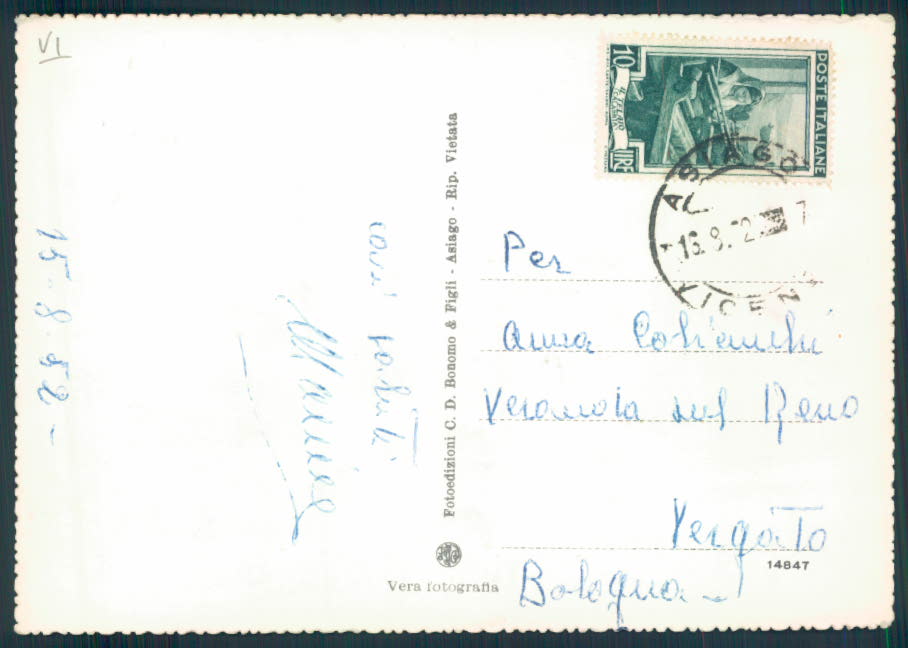 VI
10
LIRE
IL TELAIO
POSTE ITALIANE
ASIAGO
16.8.52 7
VICENZA
15-8-52-
cari saluti
Fotoedizioni C. D. Bonomo & Figli - Asiago - Rip. Vietata
Per
Anna
sul Reno
Vergato
Bologna -
14847
Vera fotografia